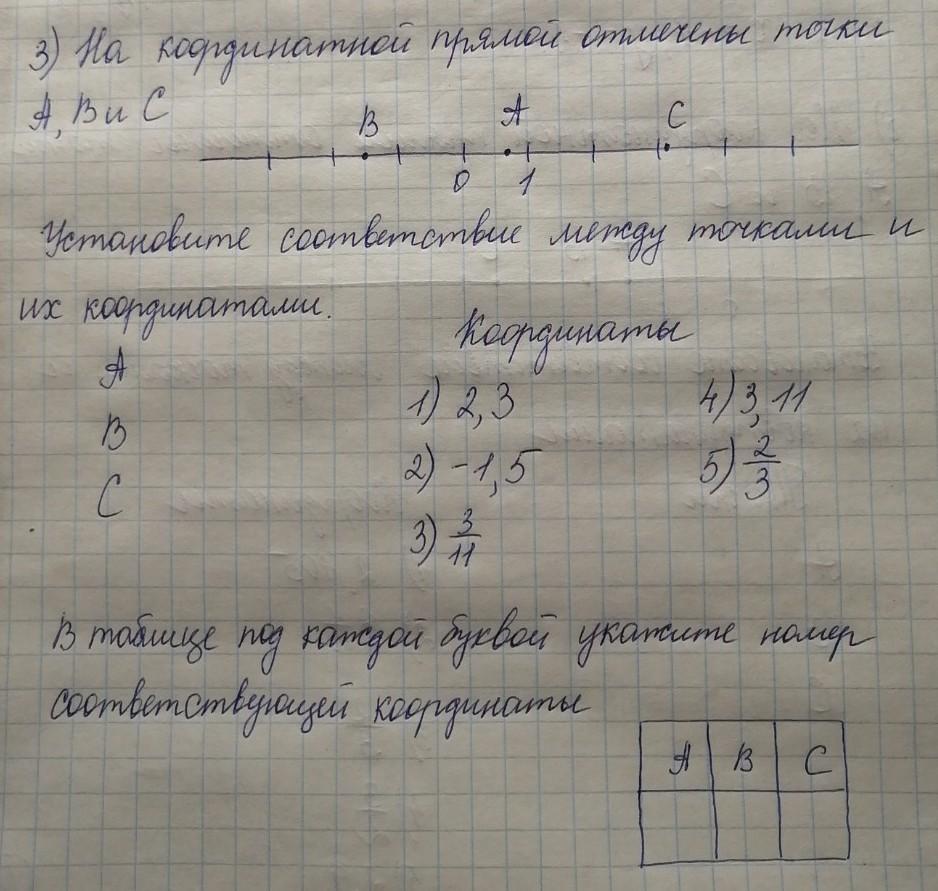 3) На координатной прямой отмечены точки
А, В и С
В А С
0 1
Установите соответствие между точками и
их координатами.
Координаты
А
1) 2,3 4) 3,11
В
2) -1,5 5) 2/3
С
3) 3/11
В таблице под каждой буквой укажите номер
соответствующей координаты
А В С